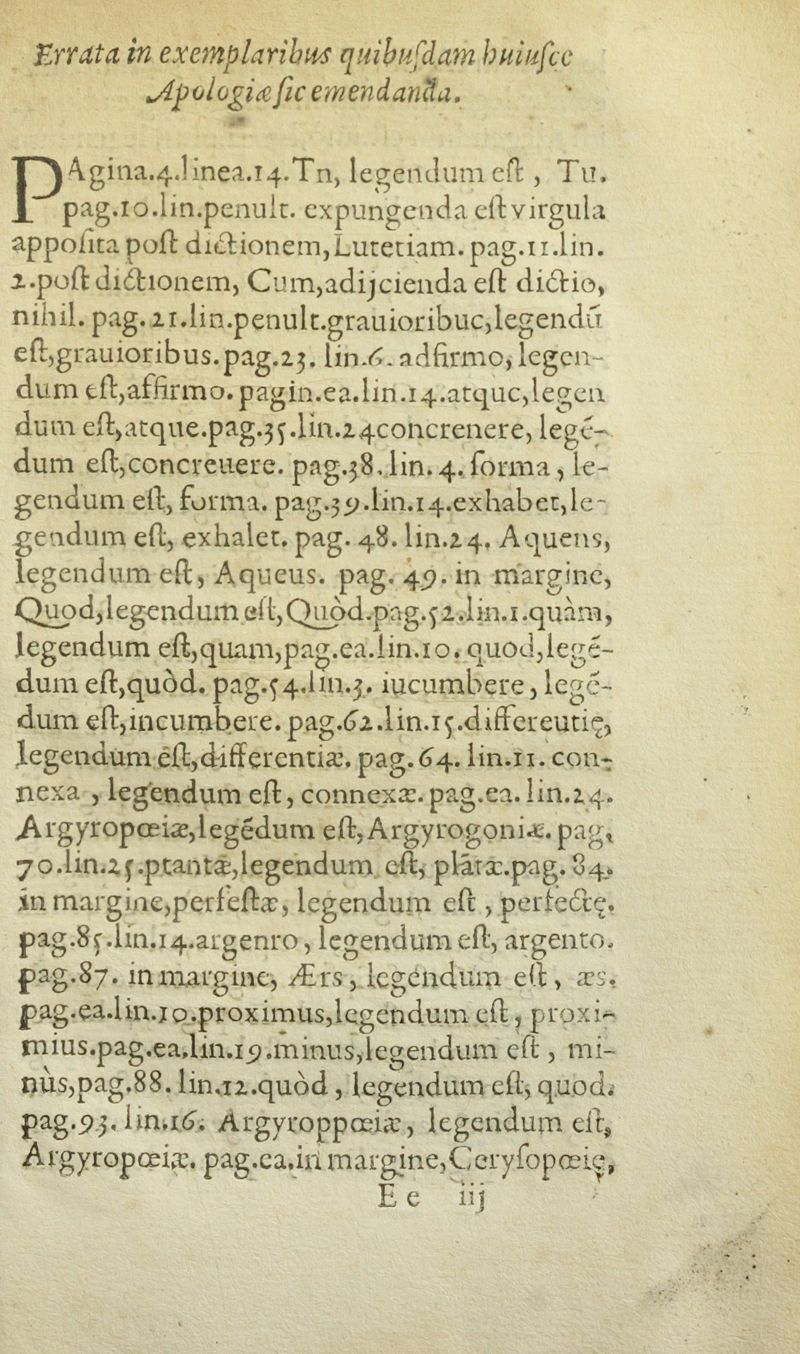 Errata in exemplaribus quibuſdam huiuſce
Apologiæ ſic emendanda.
PAgina.4.linea.14.Tn, legendum eſt, Tu.
pag.10.lin.penult. expungenda eſt virgula
appoſita poſt dictionem,Lutetiam. pag.11.lin.
2.poſt dictionem, Cum,adijcienda eſt dictio,
nihil. pag. 21.lin.penult.grauioribuc,legendū
eſt,grauioribus.pag.23. lin.6. adfirmo, legen-
dum eſt,affirmo. pagin.ea.lin.14.atquc,legen
dum eſt,atque.pag.35.lin.24concrenere, legē-
dum eſt,concreuere. pag.38. lin. 4. forma, le-
gendum eſt, forma. pag.39.lin.14.exhabet,le-
gendum eſt, exhalet. pag. 48. lin.24. Aquens,
legendum eſt, Aqueus. pag. 49. in margine,
Quod,legendum eſt,Quòd.pag.52.lin.1.quàm,
legendum eſt,quam,pag.ea.lin.10. quod,legē-
dum eſt,quòd. pag.54.lin.3. iucumbere, legē-
dum eſt,incumbere. pag.62.lin.15.differeutię,
legendum eſt,differentiæ. pag. 64. lin.11. con-
nexa , legendum eſt, connexæ. pag.ea. lin.24.
Argyropœiæ,legēdum eſt,Argyrogoniæ. pag,
70.lin.25.ptantæ,legendum eſt, plātæ.pag. 84.
in margine,perfeſtæ, legendum eſt , perfectę.
pag.85.lin.14.argenro, legendum eſt, argento.
pag.87. in margine, Ærs, legendum eſt, æs.
pag.ea.lin.10.proximus,legendum eſt, proxi-
mius.pag.ea.lin.19.minus,legendum eſt, mi-
nùs,pag.88. lin.12.quòd, legendum eſt, quod.
pag.93. lin.16. Argyroppœiæ, legendum eſt,
Argyropœiæ. pag.ea.in margine,Ceryſopœię,
E e iij